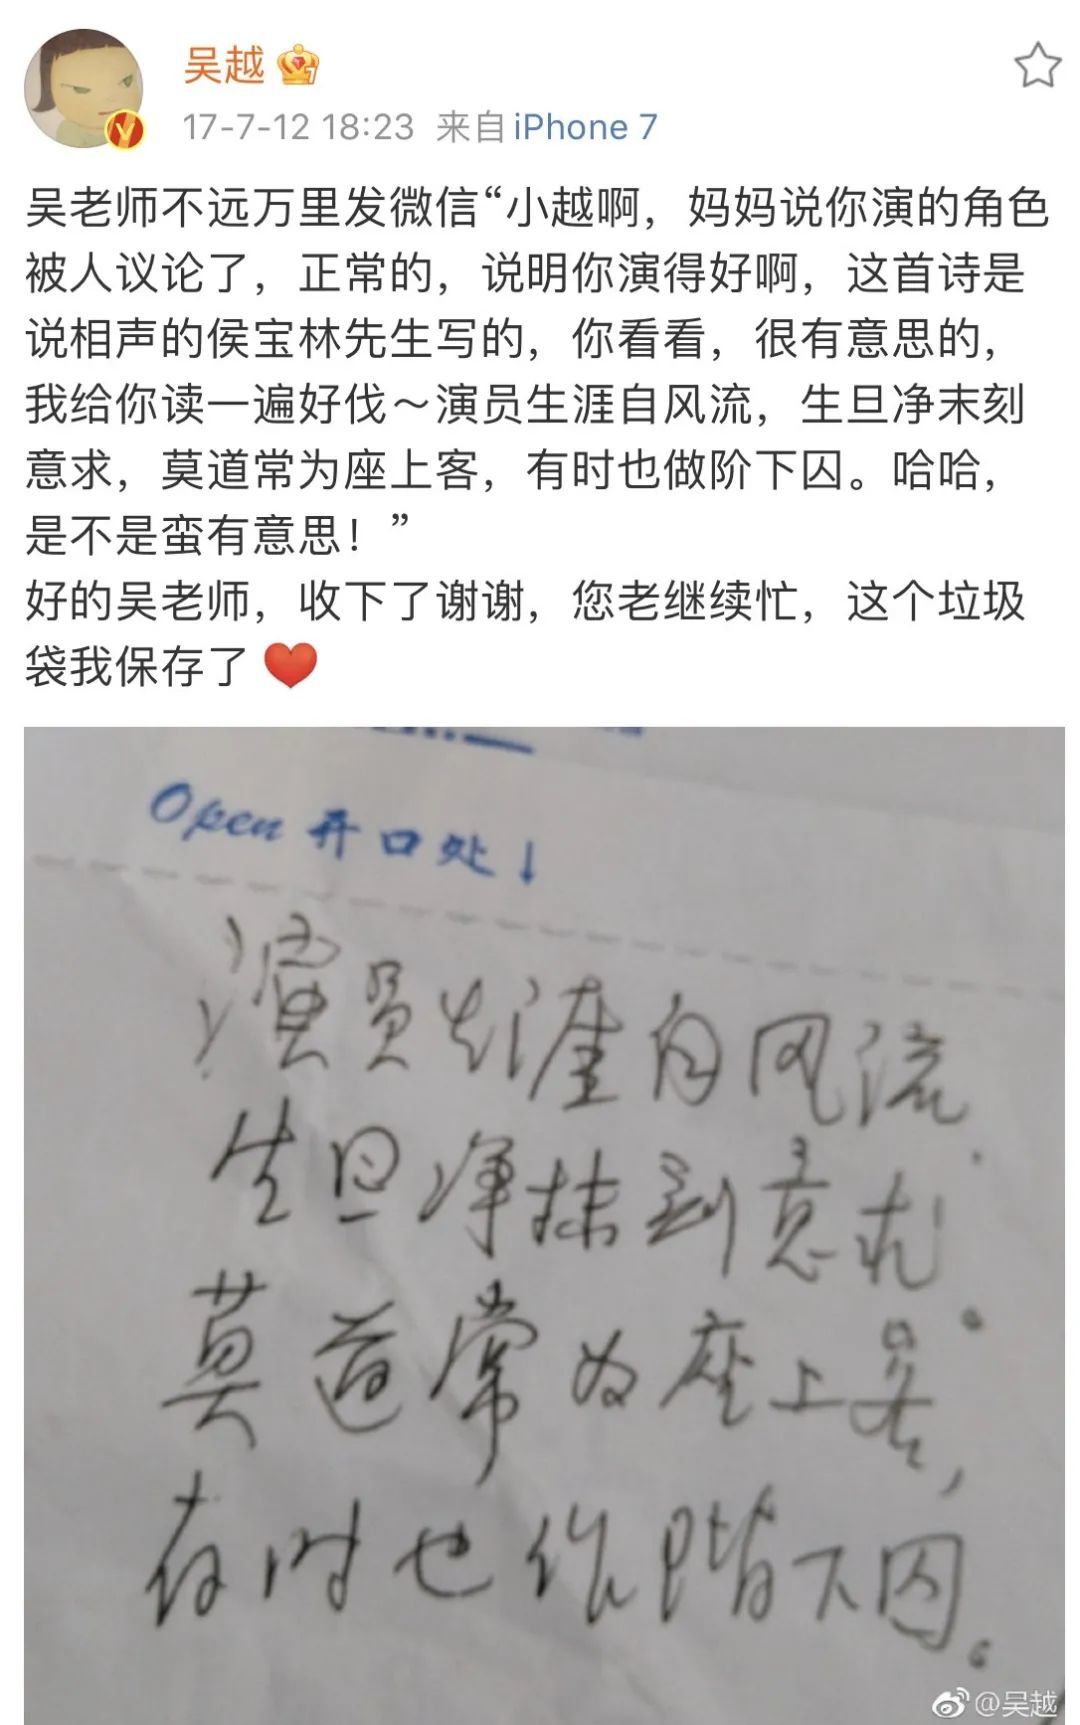 吴越
17-7-12 18:23 来自 iPhone 7
吴老师不远万里发微信“小越啊，妈妈说你演的角色
被人议论了，正常的，说明你演得好啊，这首诗是
说相声的侯宝林先生写的，你看看，很有意思的，
我给你读一遍好伐～演员生涯自风流，生旦净末刻
意求，莫道常为座上客，有时也做阶下囚。哈哈，
是不是蛮有意思！”
好的吴老师，收下了谢谢，您老继续忙，这个垃圾
袋我保存了 ❤️
Open 开口处↓
演员生涯自风流.
生旦净抹刻意求。
莫道常为座上客，
有时也作阶下囚。
@吴越